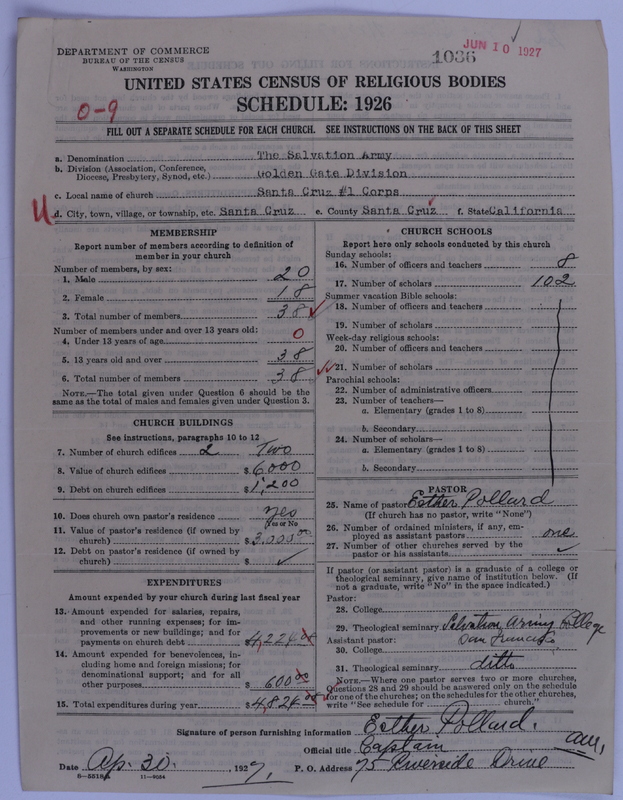 DEPARTMENT OF COMMERCE
BUREAU OF THE CENSUS
WASHINGTON
1036
JUN 10 1927
UNITED STATES CENSUS OF RELIGIOUS BODIES
0-9
SCHEDULE: 1926
FILL OUT A SEPARATE SCHEDULE FOR EACH CHURCH. SEE INSTRUCTIONS ON THE BACK OF THIS SHEET
a. Denomination The Salvation Army
b. Division (Association, Conference, Diocese, Presbytery, Synod, etc.) Golden Gate Division
c. Local name of church Santa Cruz #1 Corps
d. City, town, village, or township, etc. Santa Cruz e. County Santa Cruz f. State California
MEMBERSHIP
Report number of members according to definition of
member in your church
Number of members, by sex:
1. Male 20
2. Female 18
3. Total number of members 38
Number of members under and over 13 years old:
4. Under 13 years of age 0
5. 13 years old and over 38
6. Total number of members 38
NOTE.—The total given under Question 6 should be the
same as the total of males and females given under Question 3.
CHURCH BUILDINGS
See instructions, paragraphs 10 to 12
7. Number of church edifices 2 Two
8. Value of church edifices $6000
9. Debt on church edifices $1,200
10. Does church own pastor's residence yes
(Yes or No)
11. Value of pastor's residence (if owned by
church) $3,000.00
12. Debt on pastor's residence (if owned by
church) $
EXPENDITURES
Amount expended by your church during last fiscal year
13. Amount expended for salaries, repairs,
and other running expenses; for im-
provements or new buildings; and for
payments on church debt $4,224.00
14. Amount expended for benevolences, in-
cluding home and foreign missions; for
denominational support; and for all
other purposes $600.00
15. Total expenditures during year $4,824.00
CHURCH SCHOOLS
Report here only schools conducted by this church
Sunday schools:
16. Number of officers and teachers 8
17. Number of scholars 102
Summer vacation Bible schools:
18. Number of officers and teachers
19. Number of scholars
Week-day religious schools:
20. Number of officers and teachers
21. Number of scholars
Parochial schools:
22. Number of administrative officers
23. Number of teachers—
a. Elementary (grades 1 to 8)
b. Secondary
24. Number of scholars—
a. Elementary (grades 1 to 8)
b. Secondary
PASTOR
25. Name of pastor Esther Pollard
(If church has no pastor, write "None")
26. Number of ordained ministers, if any, em-
ployed as assistant pastors one
27. Number of other churches served by the
pastor or his assistants
If pastor (or assistant pastor) is a graduate of a college or
theological seminary, give name of institution below. (If
not a graduate, write "No" in the space indicated.)
Pastor:
28. College
29. Theological seminary Salvation Army College
San Francisco
Assistant pastor:
30. College
31. Theological seminary ditto
NOTE.—Where one pastor serves two or more churches,
Questions 28 and 29 should be answered only on the schedule
for one of the churches; on the schedules for the other churches,
write "See schedule for church."
Signature of person furnishing information Esther Pollard.
Official title Captain
Date Ap. 30. 1927. P. O. Address 75 Riverside Drive
11—9084